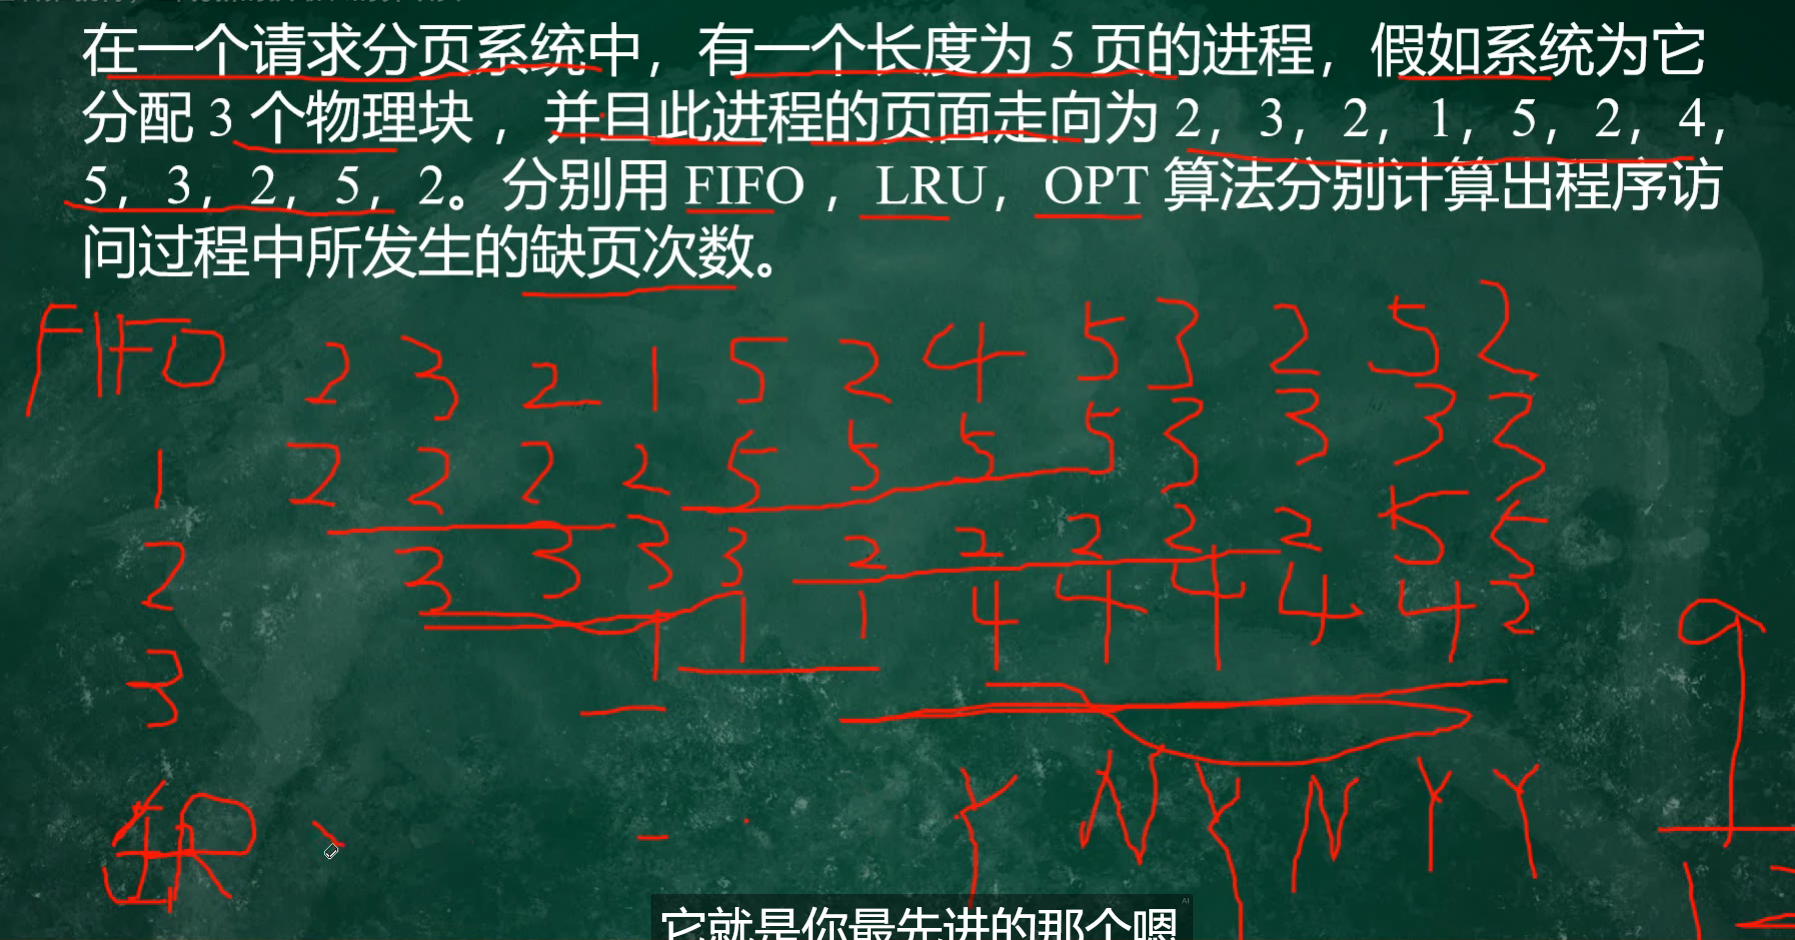 在一个请求分页系统中，有一个长度为 5 页的进程，假如系统为它
分配 3 个物理块 ，并且此进程的页面走向为 2，3，2，1，5，2，4，
5，3，2，5，2。分别用 FIFO ， LRU，OPT 算法分别计算出程序访
问过程中所发生的缺页次数。
FIFO 2 3 2 1 5 2 4 5 3 2 5 2
1 2 2 2 2 5 5 5 5 3 3 3 3
2 3 3 3 3 2 2 2 2 2 5 5
3 1 1 1 4 4 4 4 4 2
缺 Y N Y N Y Y
9
12
它就是你最先进的那个嗯
AI